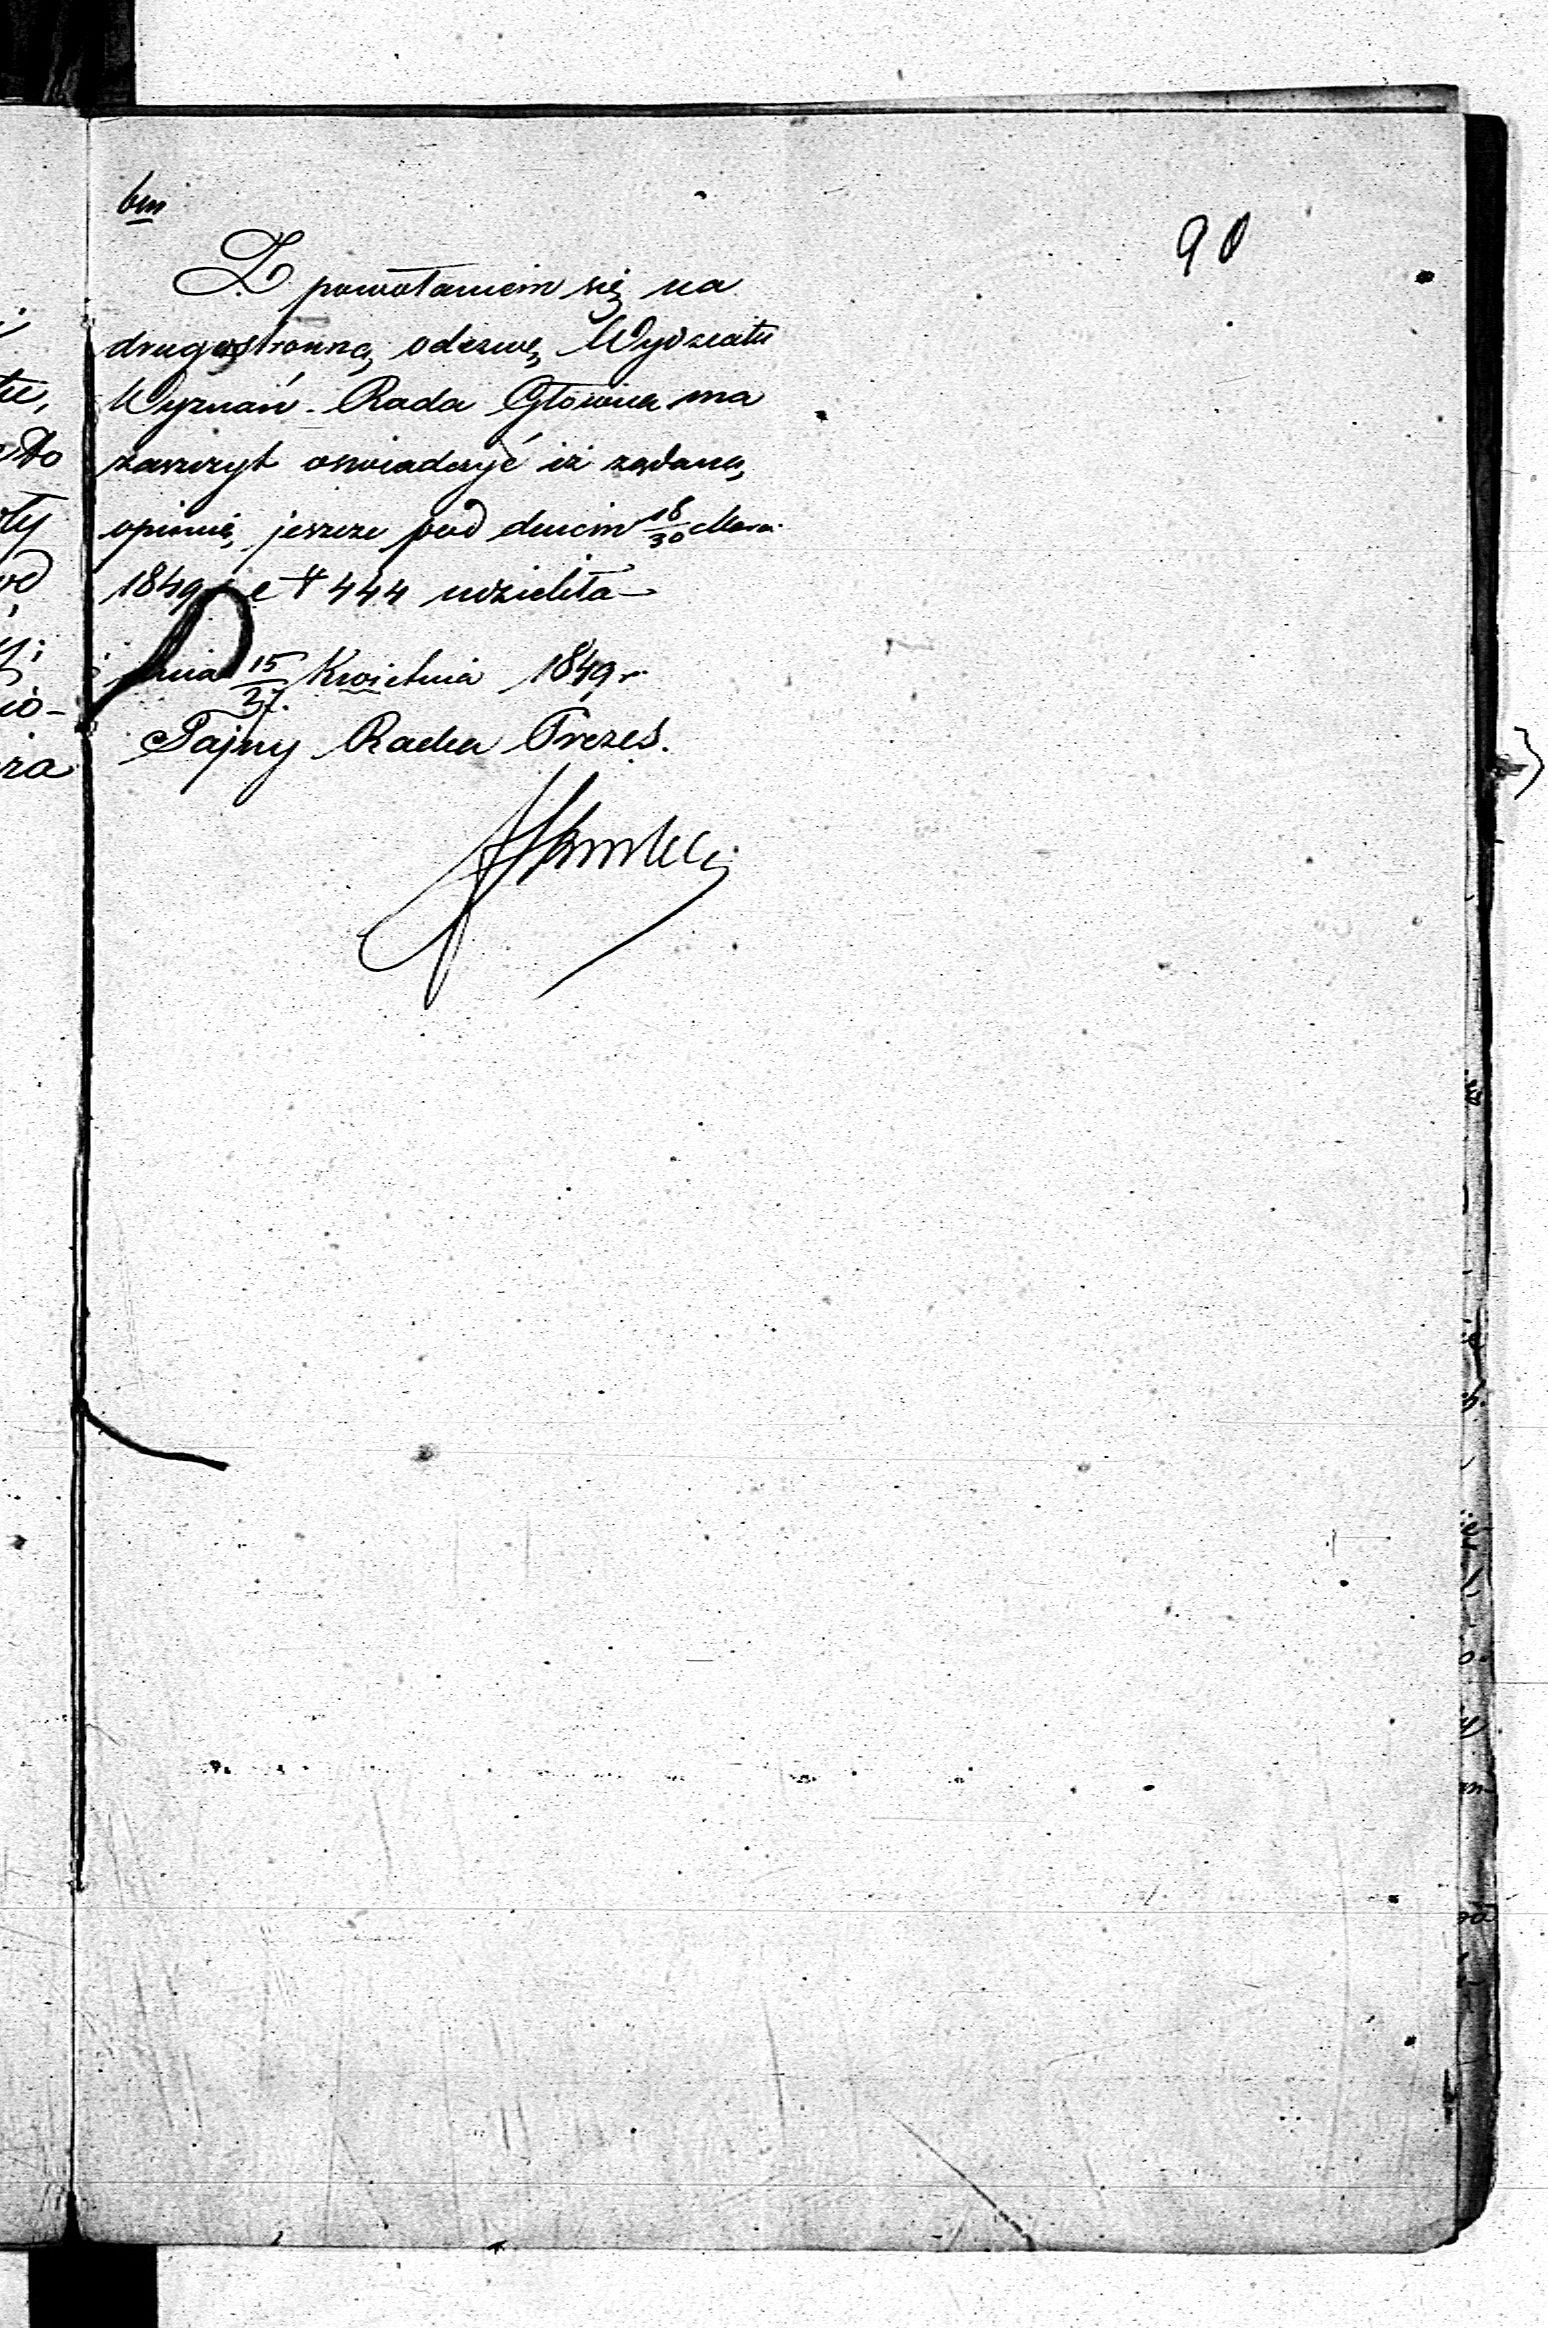 90
Z powołaniem się na
drugostronną odezwę Wydziału
Wyznań - Rada Główna ma
zaszczyt oswiadczyć iż żądaną
opinię jeszcze pod dniem 18/30 Marca
1849 r # 444 udzieliła -
dnia 15/27 Kwietnia 1849 r
Tajny Radca Prezes.